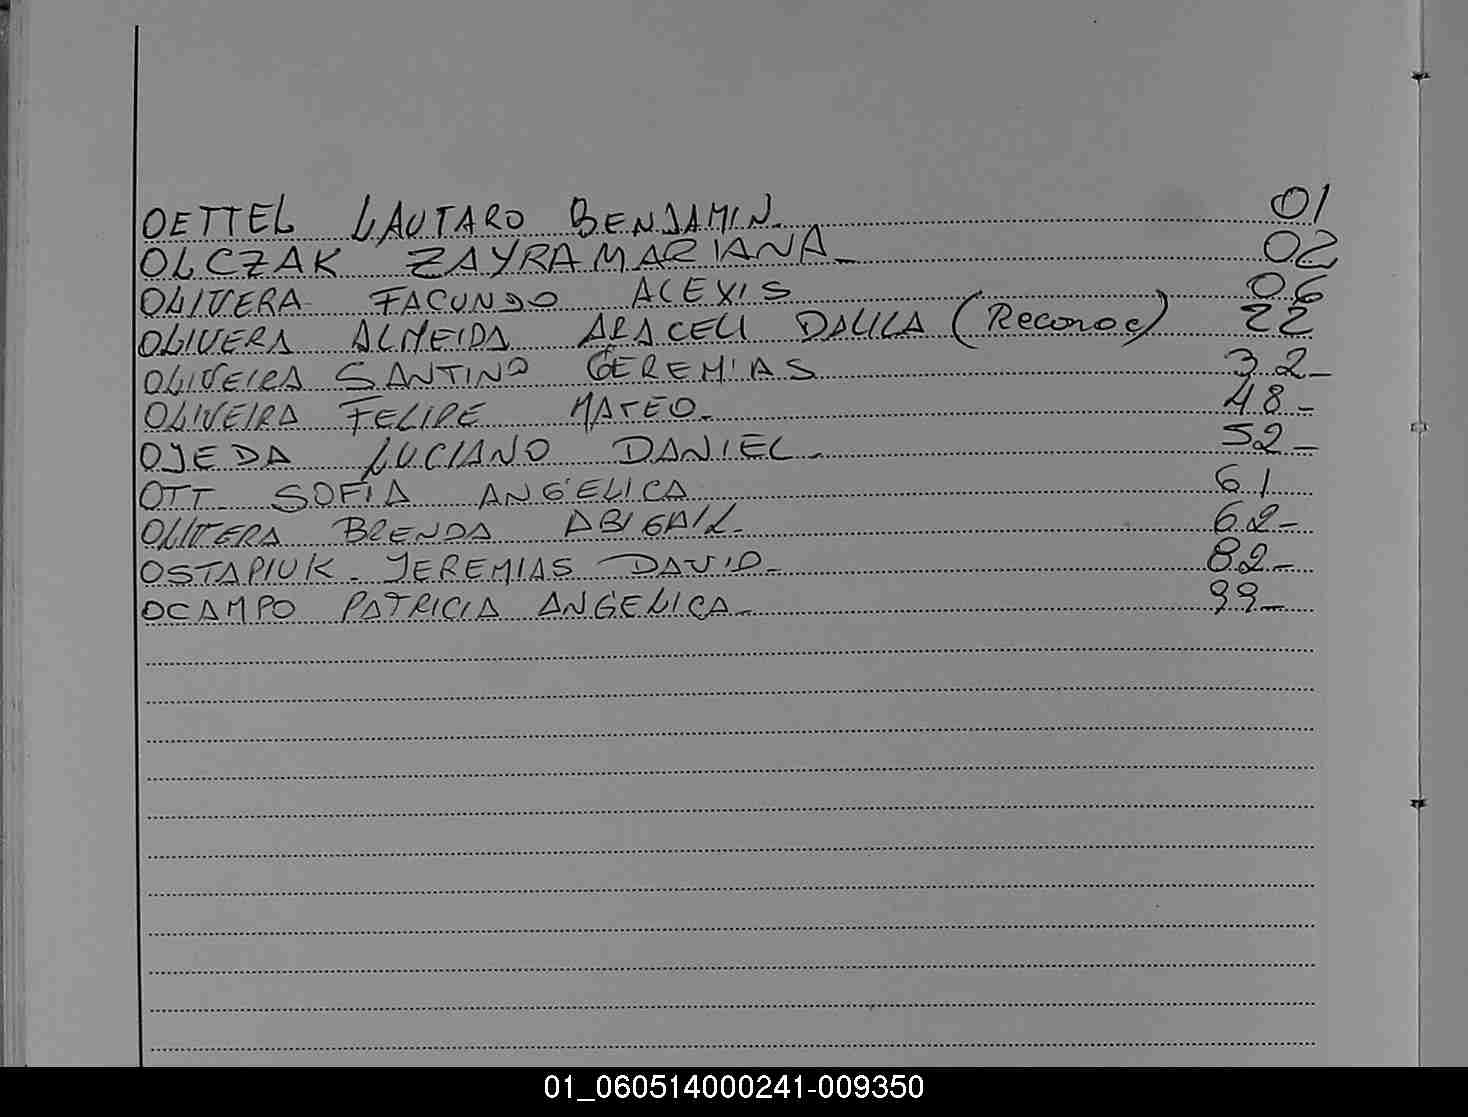 OETTEL LAUTARO BENJAMIN. 01
OLCZAK ZAYRA MARIANA_ 02
OLIVERA FACUNDO ALEXIS 06
OLIVERA ALMEIDA ARACELI DALILA (Reconoc) 22
OLIVEIRA SANTINO GEREMIAS 32_
OLIVEIRA FELIPE MATEO_ 48_
OJEDA LUCIANO DANIEL_ 52_
OTT_ SOFÍA ANGÉLICA 61
OLIVERA BRENDA ABIGAIL_ 62_
OSTAPIUK_ JEREMIAS DAVID_ 82_
OCAMPO PATRICIA ANGÉLICA_ 99_
01_060514000241-009350